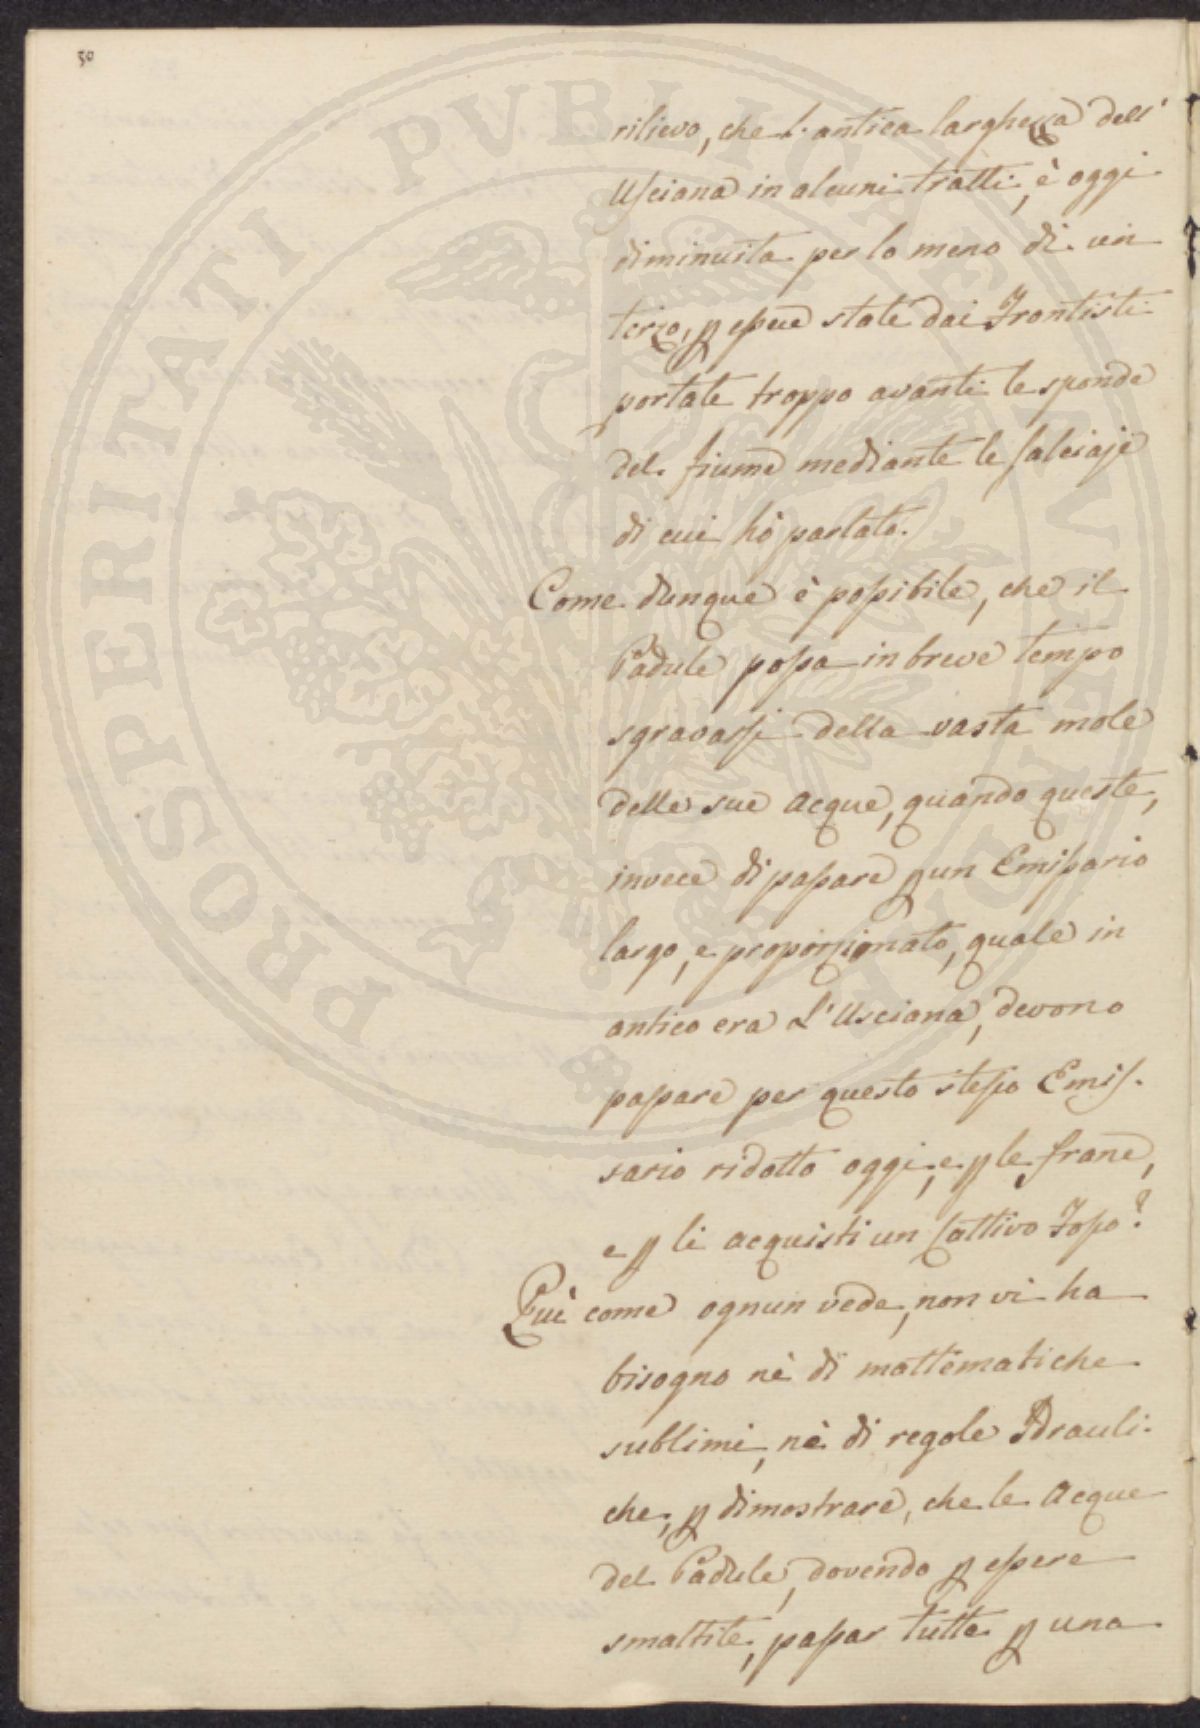 50
rilievo, che l'antica larghezza dell'
Usciana in alcuni tratti, è oggi
diminuita per lo meno di un
terzo, p essere state dai Frontisti
portate troppo avanti le sponde
del fiume mediante le salciaje
di cui hò parlato.
Come dunque è possibile, che il
Padule possa in breve tempo
sgravarsi della vasta mole
delle sue acque, quando queste,
invece di passare p un Emissario
largo, e proporzionato, quale in
antico era L'Usciana, devono
passare per questo stesso Emis-
sario ridotto oggi, e p le frane,
e p li acquisti un cattivo Fosso?
Quì come ognun vede, non vi ha
bisogno nè di mattematiche
sublimi, nè di regole Idrauli-
che, p dimostrare, che le Acque
del Padule, dovendo p essere
smaltite, passar tutte p una
PROSPERITATI PVBLICAE AVGENDAE